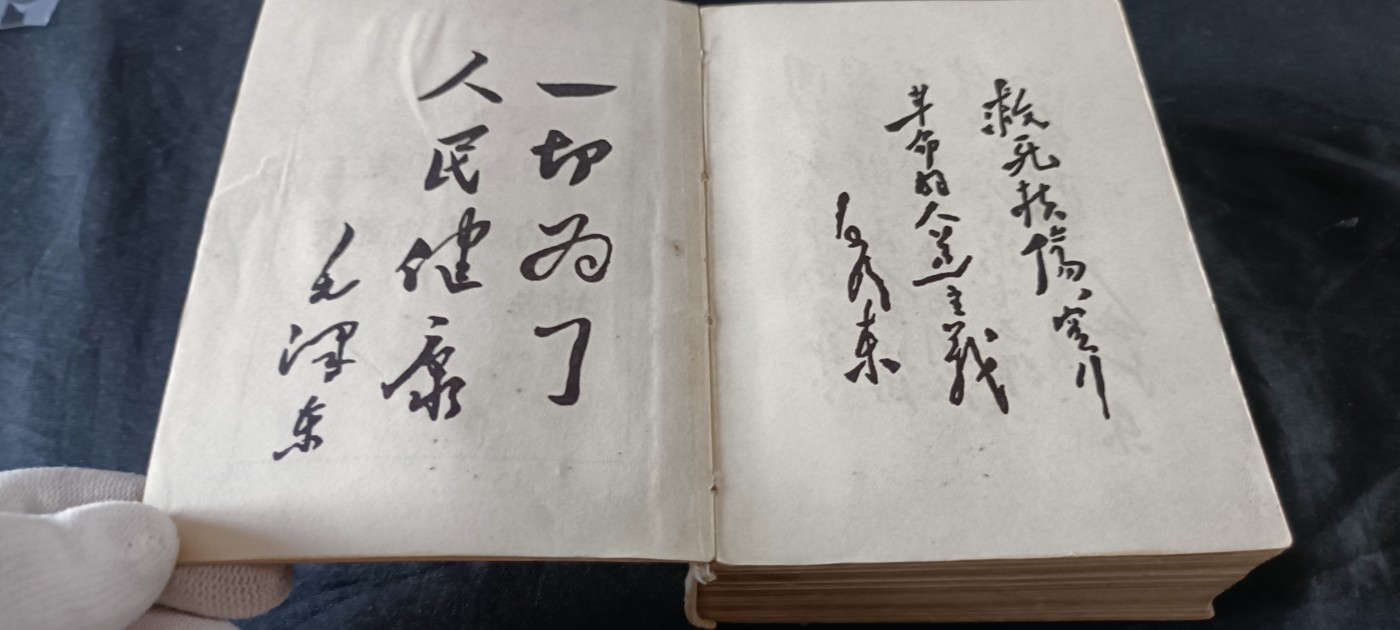 一切为了
人民健康
毛泽东
救死扶傷，实行
革命的人道主義
毛泽東